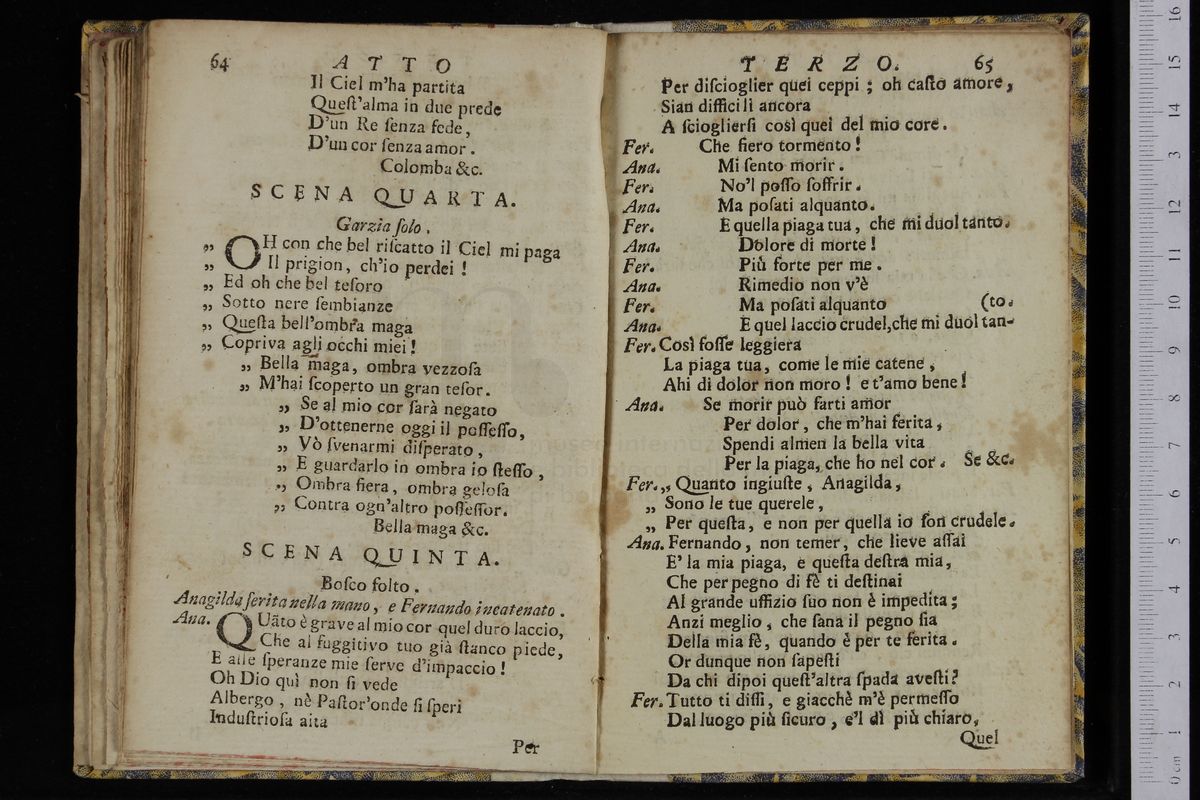 64 ATTO
Il Ciel m'ha partita
Queſt'alma in due prede
D'un Re ſenza fede,
D'un cor ſenza amor.
Colomba &c.
SCENA QUARTA.
Garzia ſolo.
„ OH con che bel riſcatto il Ciel mi paga
„ Il prigion, ch'io perdei !
„ Ed oh che bel teſoro
„ Sotto nere ſembianze
„ Queſta bell'ombra maga
„ Copriva agli occhi miei !
„ Bella maga, ombra vezzoſa
„ M'hai ſcoperto un gran teſor.
„ Se al mio cor ſarà negato
„ D'ottenerne oggi il poſſeſſo,
„ Vò ſvenarmi diſperato,
„ E guardarlo in ombra io ſteſſo,
„ Ombra fiera, ombra geloſa
„ Contra ogn'altro poſſeſſor.
Bella maga &c.
SCENA QUINTA.
Boſco folto.
Anagilda ferita nella mano, e Fernando incatenato.
Ana. QUãto è grave al mio cor quel duro laccio,
Che al fuggitivo tuo già ſtanco piede,
E alle ſperanze mie ſerve d'impaccio !
Oh Dio quì non ſi vede
Albergo, nè Paſtor'onde ſi ſperi
Induſtrioſa aita
Per
TERZO. 65
Per diſcioglier quei ceppi ; oh caſto amore,
Sian difficili ancora
A ſcioglierſi così quei del mio core.
Fer. Che fiero tormento !
Ana. Mi ſento morir.
Fer. No'l poſſo ſoffrir.
Ana. Ma poſati alquanto.
Fer. E quella piaga tua, che mi duol tanto.
Ana. Dolore di morte !
Fer. Più forte per me.
Ana. Rimedio non v'è
Fer. Ma poſati alquanto (to.
Ana. E quel laccio crudel, che mi duol tan-
Fer. Così foſſe leggiera
La piaga tua, come le mie catene,
Ahi di dolor non moro ! e t'amo bene !
Ana. Se morir può farti amor
Per dolor, che m'hai ferita,
Spendi almen la bella vita
Per la piaga, che ho nel cor. Se &c.
Fer. „ Quanto ingiuſte, Anagilda,
„ Sono le tue querele,
„ Per queſta, e non per quella io ſon crudele.
Ana. Fernando, non temer, che lieve aſſai
E' la mia piaga, e queſta deſtra mia,
Che per pegno di fè ti deſtinai
Al grande uffizio ſuo non è impedita ;
Anzi meglio, che ſana il pegno ſia
Della mia fè, quando è per te ferita.
Or dunque non ſapeſti
Da chi dipoi queſt'altra ſpada aveſti ?
Fer. Tutto ti diſſi, e giacchè m'è permeſſo
Dal luogo più ſicuro, e'l dì più chiaro,
Quel